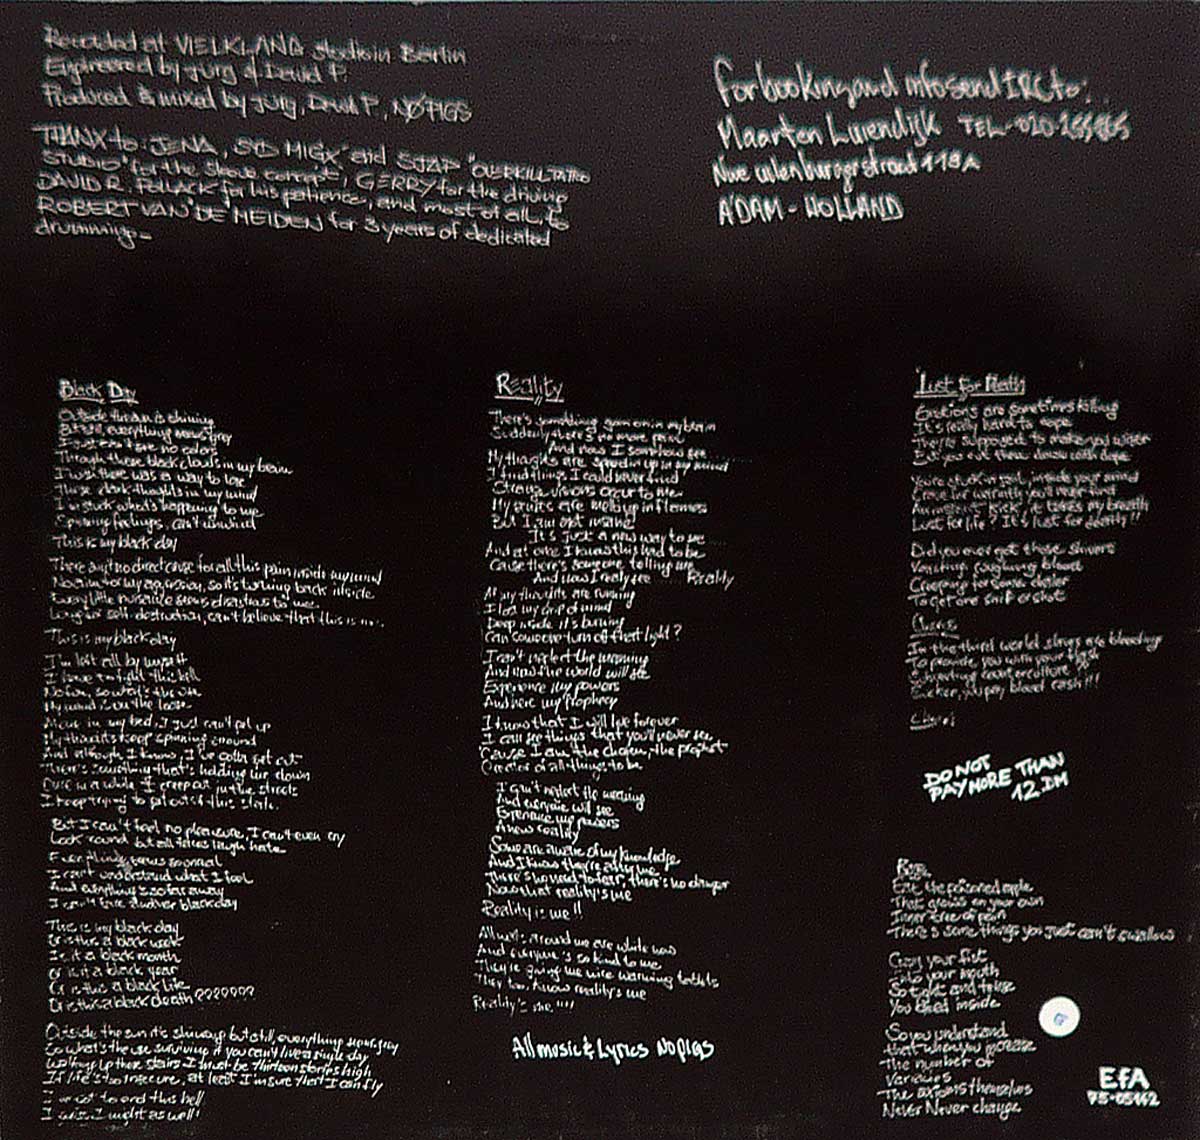 Recorded at VIELKLANG studio in Berlin
Engineered by Jürg & David P.
Produced & mixed by Jürg, David P., NØ PIGS
THANX to: JENA, SYD MIGX and SJAP "OVERKILL TATTOO
STUDIO" for the sleeve concept, GERRY for the driving
DAVID R. POLLACK for his patience, and most of all, to
ROBERT VAN DE MEIDEN for 3 years of dedicated
drumming -
For booking and info send IRC to:
Maarten TEL-020-
118A
A'DAM - HOLLAND
Black Day
Outside the sun is shining
But still, everything seems grey
I just can't see no color
Through these black clouds in my brain
I wish there was a way to lose
These dark thoughts in my mind
I'm stuck what's happening to me
Spinning feelings, can't unwind
This is my black day
There ain't no direct cause for all this pain inside my mind
No aim for my agression, so it's turning back inside
Every little nuisance seems disastrous to me
Longing for self-destruction, can't believe that this is me
This is my black day
I'm left all by myself
I have to fight this hell
No fun, so what's the use
My mind is on the loose
Alone in my bed, I just can't get up
My thoughts keep spinning around
And although I know, I've gotta get out
There's something that's holding me down
Once in a while I creep out in the streets
I keep trying to get out of this state
But I can't feel no pleasure, I can't even cry
Look round but all faces laugh hate
Everything seems so normal
I can't understand what I feel
And everything's so far away
I can't take another black day
This is my black day
Or is this a black week
Is it a black month
Or is it a black year
Or is this a black life
Or is this a black death ????????
Outside the sun it's shining but still, everything seems grey
So what's the use surviving if you can't live a single day
Walking up these stairs I must be thirteen stories high
If life's too insecure, at least I'm sure that I can fly
I've got to end this hell
I guess I might as well!
Reality
There's something goin on in my brain
Suddenly there's no more pain
And now I somehow see
My thoughts are speedin up in my mind
I find things I could never find
Strange visions occur to me
My brains are melting in flames
But I am not insane
It's just a new way to see
And at once I know this had to be
Cause there's someone telling me
And now I really see Reality
All my thoughts are running
I lost my grip of mind
Deep inside it's burning
Can someone turn off that light?
I can't neglect the warning
And now the world will see
Experience my powers
And hear my prophecy
I know that I will live forever
I can see things that you'll never see
'Cause I am the chosen, the prophet
Creator of all things to be
I can't neglect the warning
And everyone will see
Experience my powers
A new reality
Some are aware of my knowledge
And I know they're after me
There's no need to fear, there's no danger
Now that reality's me
Reality is me!!
All walls around me are white now
And everyone's so kind to me
They're giving me nice warming tablets
They too know reality's me
Reality's me!!!!
All music & Lyrics NO PIGS
Lust for Death
Emotions are sometimes killing
It's really hard to cope
They're supposed to make you wiser
But you cut them down with dope
You're stuck in jail inside your mind
Crave for warmth you'll never find
An instant kick, it takes my breath
Lust for life? It's lust for death!!
Did you ever get these shivers
Vomiting, coughing blood
Creeping for some dealer
To get one sniff or shot
Chorus
In the third world, slaves are bleeding
To provide you with your
Supporting counterculture
Sucker, you pay blood cash!!!
Chorus
DO NOT
PAY MORE THAN
12 DM
Eat the poisoned apple
That grows on your own
Inner tree of pain
There's some things you just can't swallow
Cram your fist
Into your mouth
So tight and tense
You bleed inside
So you understand
that when you increase
The number of
Variables
The axioms themselves
Never Never change
EfA
75-05142